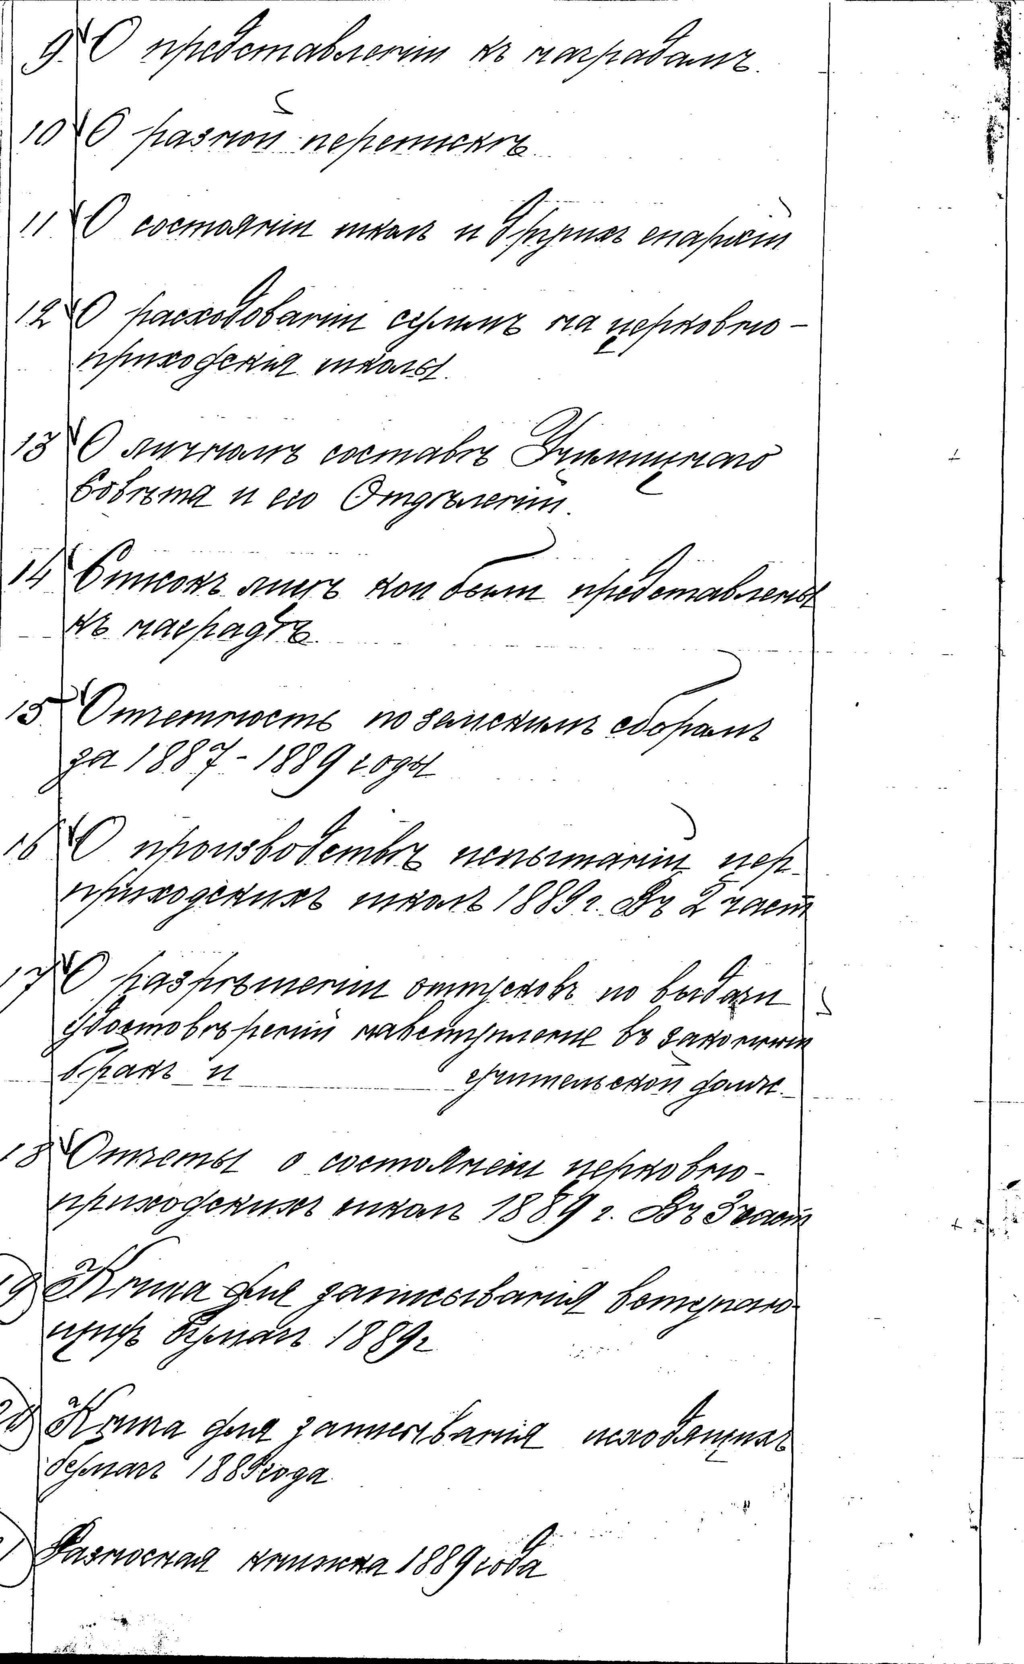 9. О представленіи къ наградамъ.
10 О разной перепискѣ
11. О состояніи школъ и другихъ епархій
12 О расходованіи суммъ на церковно-
приходскія школы.
13 О личномъ составѣ Училищнаго
Совѣта и его Отдѣленій.
14 Списокъ лицъ кои были представлены
къ наградѣ
15 Отчетность по земскимъ сборамъ
за 1887-1889 годы
16 О производствѣ испытаній цер-
приходскихъ школъ 1889 г. Въ 2 част
17 О разрѣшеніи отпусковъ по выдачи
удостовѣреній на вступленіе въ законный
бракъ и учительской долж.
18 Отчеты о состояніи церковно-
приходскихъ школъ 1889 г. Въ 3 част
19 Книга для записыванія вступаю-
щихъ бумагъ 1889 г
20 Книга для записыванія исходящихъ
бумагъ 1889 года
Разносная книжка 1889 года